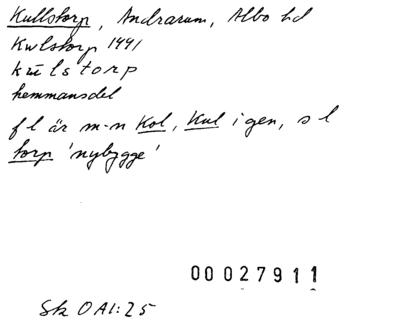 Kullstorp, Andrarum, Albo hd
Kwlstorp 1491
kūlstorp
hemmansdel
f l är m-n Kol, Kul i gen, s l
torp 'nybygge'
00027911
Sk OAl:25